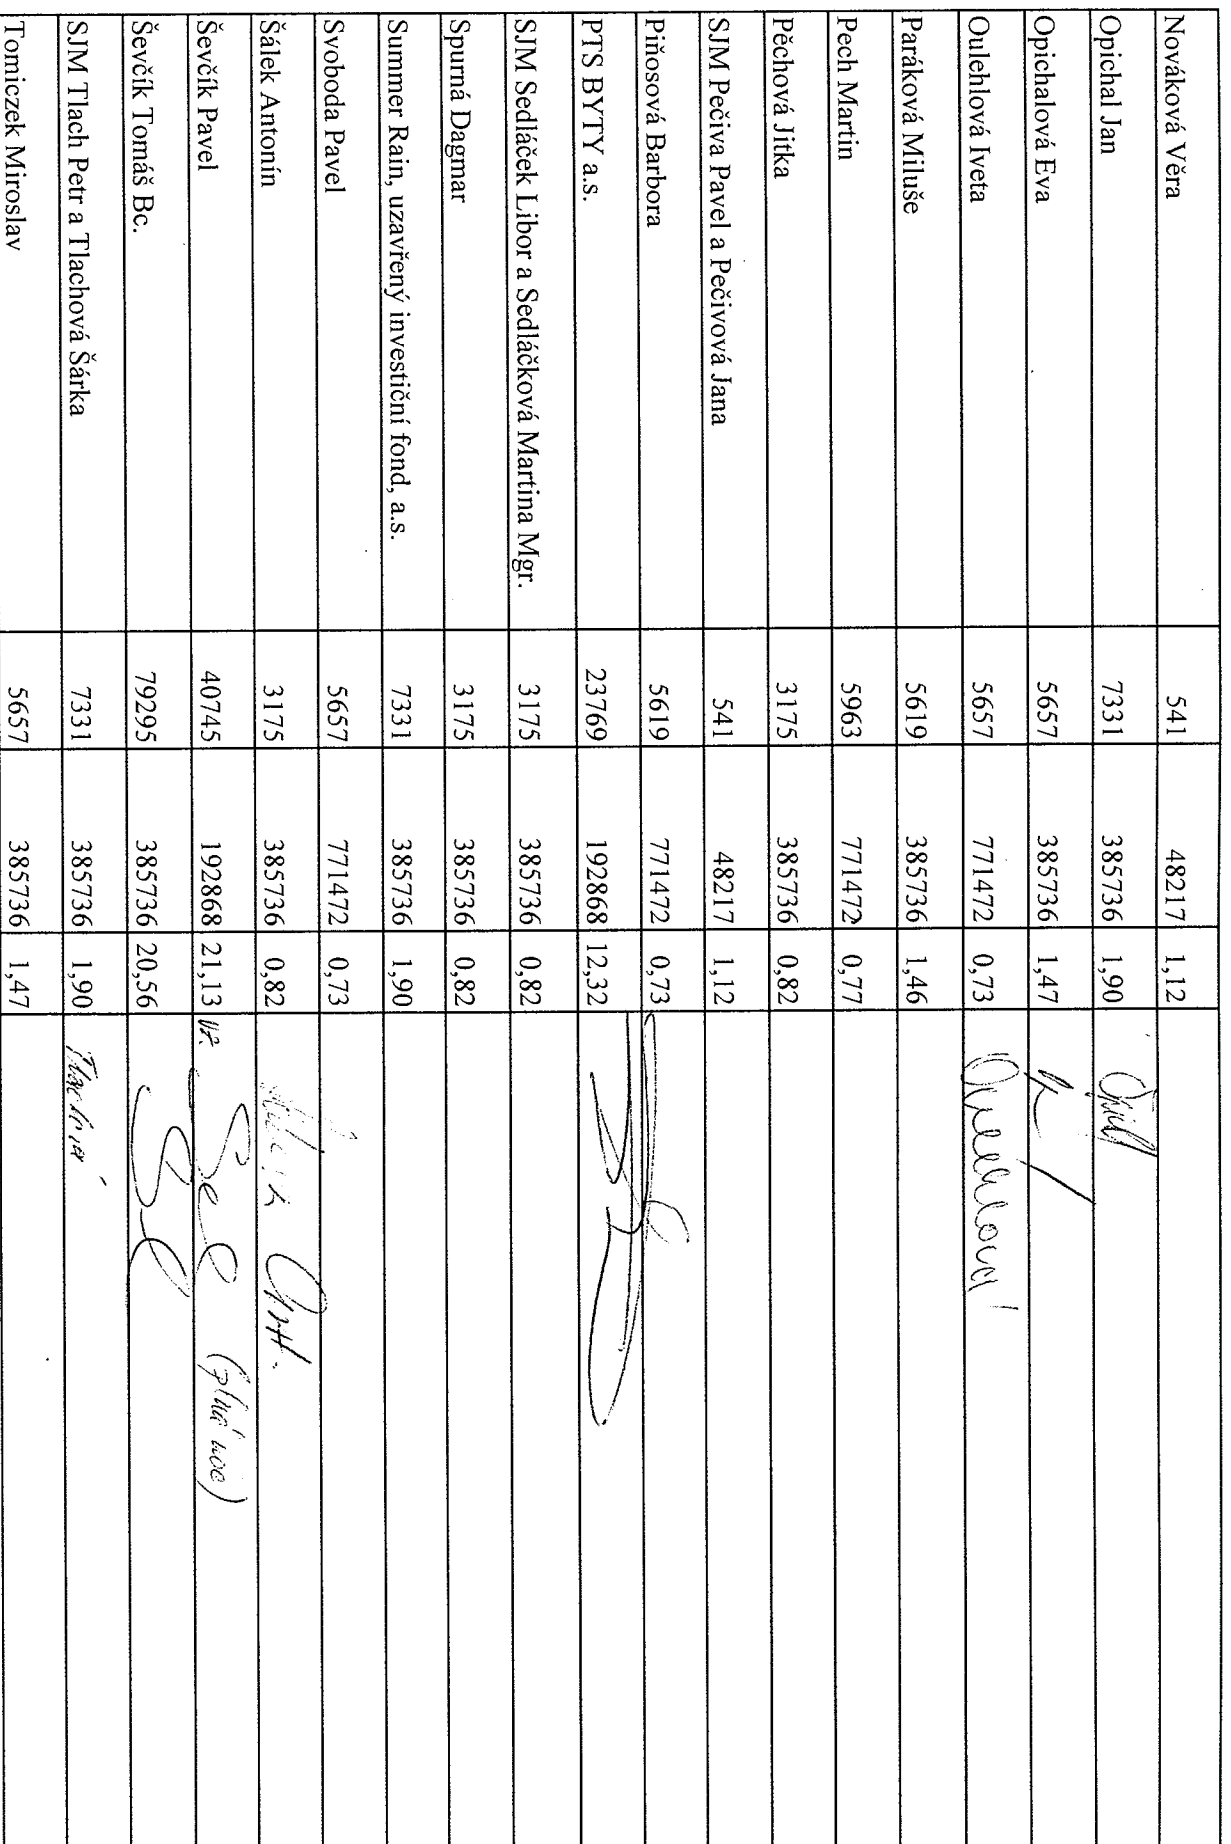 Nováková Věra 541 48217 1,12
Opichal Jan 7331 385736 1,90
Opichalová Eva 5657 385736 1,47
Oulehlová Iveta 5657 771472 0,73 Oulehlová
Paráková Miluše 5619 385736 1,46
Pech Martin 5963 771472 0,77
Pěchová Jitka 3175 385736 0,82
SJM Pečiva Pavel a Pečivová Jana 541 48217 1,12
Piňosová Barbora 5619 771472 0,73
PTS BYTY a.s. 23769 192868 12,32
SJM Sedláček Libor a Sedláčková Martina Mgr. 3175 385736 0,82
Spurná Dagmar 3175 385736 0,82
Summer Rain, uzavřený investiční fond, a.s. 7331 385736 1,90
Svoboda Pavel 5657 771472 0,73
Šálek Antonín 3175 385736 0,82 Ant.
Ševčík Pavel 40745 192868 21,13 (plná moc)
Ševčík Tomáš Bc. 79295 385736 20,56
SJM Tlach Petr a Tlachová Šárka 7331 385736 1,90 Tlachová
Tomiczek Miroslav 5657 385736 1,47